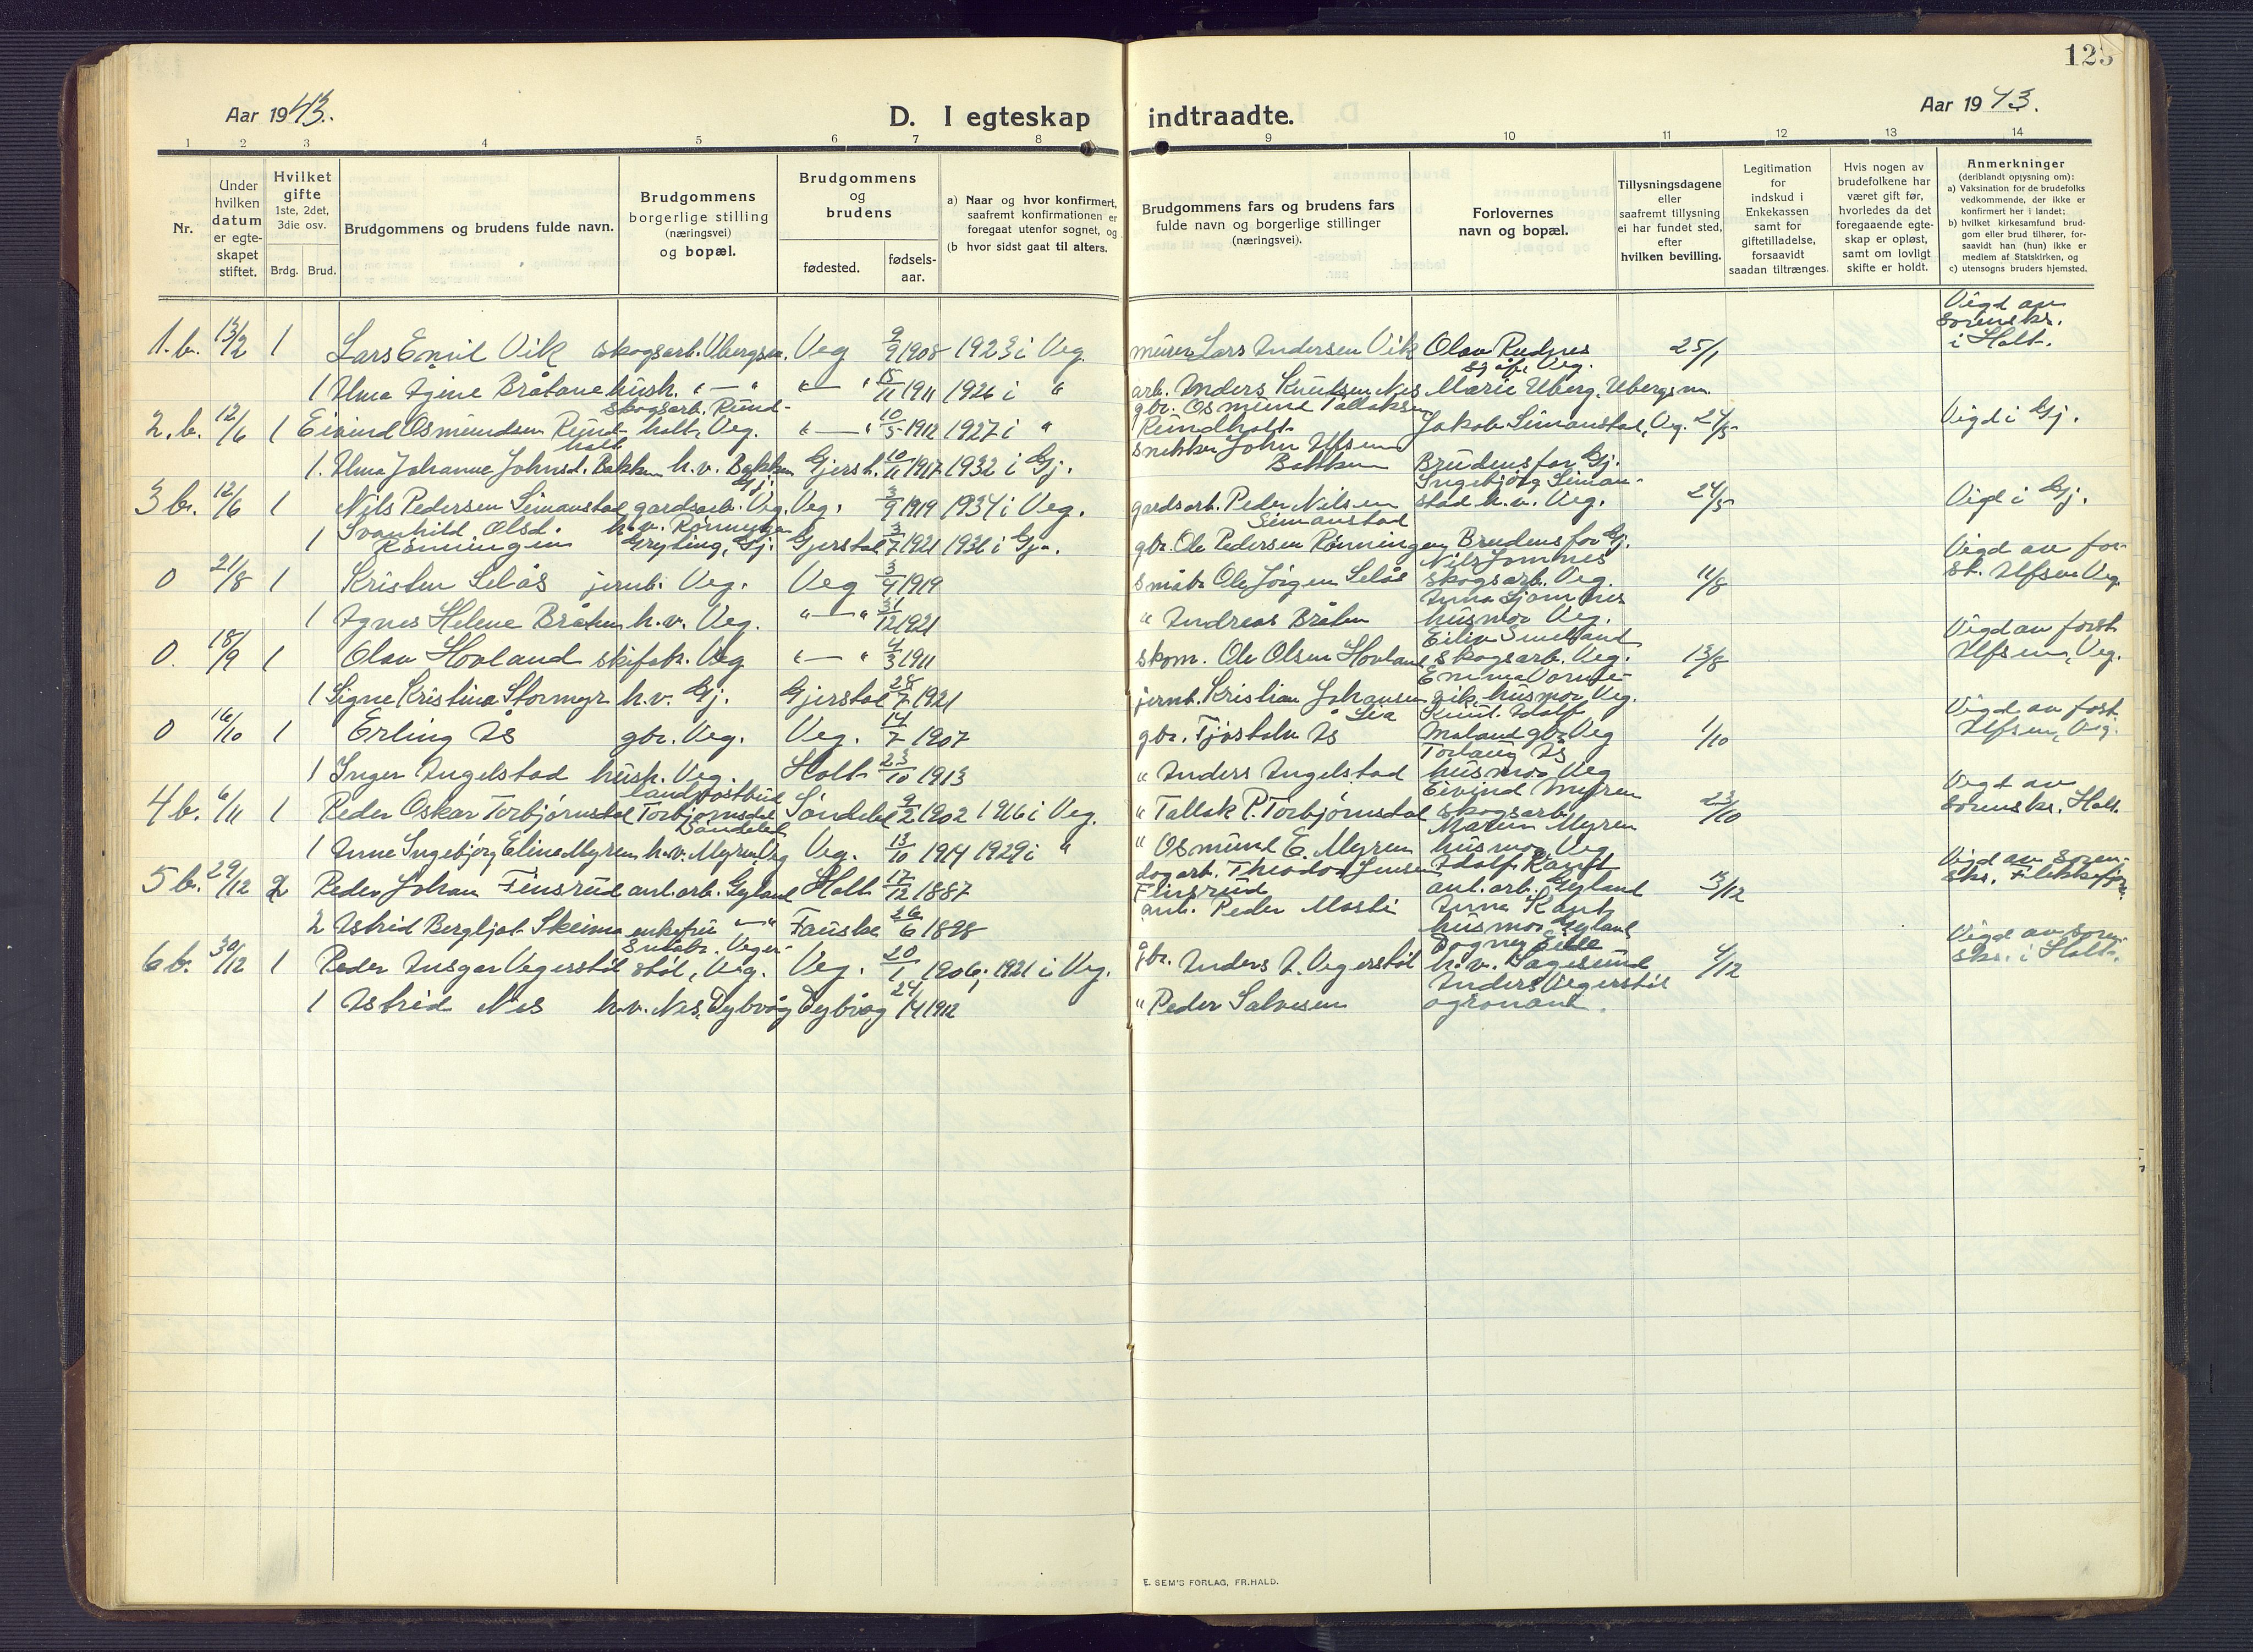 123
Aar 1943.
D. I egteskap indtraadte.
Aar 1943.
1 2 3 4 5 6 7 8 9 10 11 12 13 14
Nr.
Under hvilken datum er egte-skapet stiftet.
Hvilket gifte 1ste, 2det, 3die osv.
Brdg. Brud.
Brudgommens og brudens fulde navn.
Brudgommens borgerlige stilling (næringsvei) og bopæl.
Brudgommens og brudens
fødested.
fødsels-aar.
a) Naar og hvor konfirmert, saafremt konfirmationen er foregaat utenfor sognet, og
(b hvor sidst gaat til alters.
Brudgommens fars og brudens fars fulde navn og borgerlige stillinger (næringsvei).
Forlovernes navn og bopæl.
Tillysningsdagene eller saafremt tillysning ei har fundet sted, efter hvilken bevilling.
Legitimation for indskud i Enkekassen samt for giftetilladelse, forsaavidt saadan tiltrænges.
Hvis nogen av brudefolkene har været gift før, hvorledes da det foregaaende egte-skap er opløst, samt om lovligt skifte er holdt.
Anmerkninger
(deriblandt opjysning om):
a) Vaksination for de brudefolks vedkommende, der ikke er konfirmert her i landet;
b) hvilket kirkesamfund brud-gom eller brud tilhører, for-saavidt han (hun) ikke er medlem af Statskirken, og
c) utensogns bruders hjemsted.
1. b. 13/2 1 Lars Emil Vik skogsarb. Ubergsm. Veg 9/9 1908 1923 i Veg. murer Lars Andersen Vik Olav Rudnes sjåf. Veg. 25/1 Vigd av sorenskr. i Holt.
1 Alma Agine Bråtane hush. " — " " — " 15/11 1911 1926 i " arb. Anders Knutsen Nes Marie Uberg, Ubergsm.
2. b. 12/6 1 Eivind Osmundsen Rundholt skogsarb. Rundholt, Veg. " — " 10/5 1912 1927 i " gbr. Osmund Tallaksen Rundholt Jakob Simonstad, Veg. 24/5 Vigd i Gj.
1. Alma Johanne Johnsd. Bakken h.v. Bakken Gj. Gjerst. 10/11 1917 1932 i Gj. snekker John Alfsen Bakken Brudens far Gj.
3 b. 12/6 1 Nils Pedersen Simonstad gardsarb. Veg. Veg. 3/9 1919 1934 i Veg. gardsarb. Peder Nilsen Simonstad Ingebjørg Simonstad h.v. Veg. 24/5 Vigd i Gj.
1 Svanhild Olsd. Rønningen h.v. Rønningen Gryting, Gj. Gjerstad 3/7 1921 1936 i Gj. gbr. Ole Pedersen Rønningen Brudens far Gj.
0 21/8 1 Kristen Selås jernb. Veg. Veg 3/9 1919 småbr. Ole Jørgen Selås skogsarb. Veg. 11/8 Vigd av forst. Alfsen Veg.
1 Agnes Helene Bråten h.v. Veg. " — " 31/12 1921 " Andreas Bråten husmor Veg.
0. 18/9 1 Olav Hovland skifabr. Veg " — " 4/3 1911 skom. Ole Olsen Hovland skogsarb. Veg. 13/8 Vigd av forst. Alfsen, Veg.
1 Signe Kristina Stormyr h.v. Gj. Gjerstad 28/7 1921 jernb. Kristian Johansen Lia Emma Vormevik husmor Veg.
0 16/10 1 Erling Ås gbr. Veg. Veg. 14/7 1907 gbr. Tjøstolv Ås Knut Adolf Moland gbr. Veg 1/10 Vigd av forst. Alfsen, Veg.
1 Inger Angelstad hush. Veg. Holt 23/10 1913 " Anders Angelstad Torlaug Ås husmor Veg
4 b. 6/11 1 Peder Oskar Torbjørnsdal landpostbud Torbjørnsdal Søndeled Søndeled 9/2 1902 1916 i Veg. " Tallak P. Torbjørnsdal Eivind Myren skogsarb. 23/10 Vigd av sorenskr. Holt.
1 Anne Ingebjørg Eline Myren h.v. Myren Veg Veg. 13/10 1914 1929 i " " Osmund E. Myren Maren Myren husmor Veg
5 b. 29/12 2 Peder Johan Finsrud anl.arb. Gyland Holt 17/12 1887 dagarb. Theodor Jensen Finsrud Adolf Kanft anl.arb. Gyland 13/12 Vigd av sorenskr. Flekkefjor.
2 Astrid Bergljot Skeimo enkefru " — " Fauske 26/6 1898 anl. Peder Mosti Anna Kanft husmor Gyland
6 b. 30/12 1 Peder Ansgar Vegerstøl småbr. Vegerstøl, Veg. Veg. 20/1 1906. 1921 i Veg. gbr. Anders A. Vegerstøl Dagny Eilde h.v. Sagesund 4/12 Vigd av sorenskr. i Holt.
1 Astrid Nes h.v. Nes, Dybvåg Dybvåg 24/4 1912 " Peder Salvesen Anders Vegerstøl agronom.
E. SEM'S FORLAG, FR.HALD.